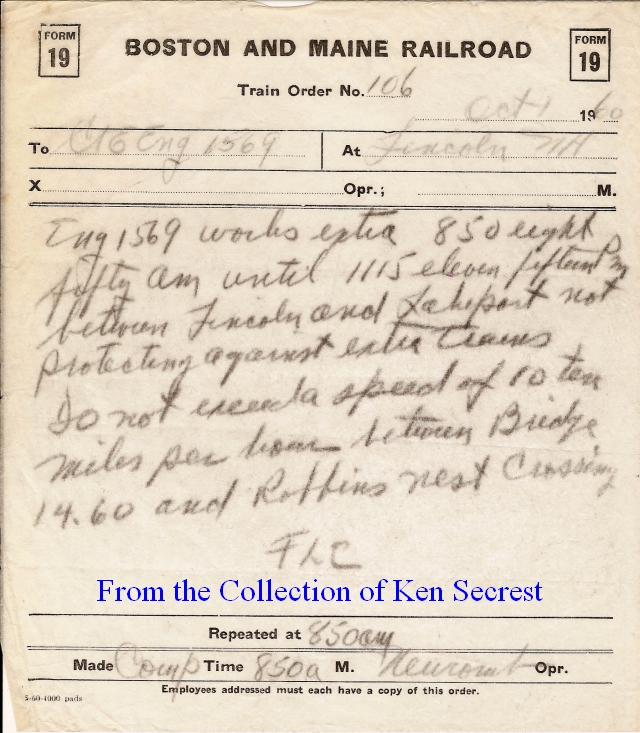 FORM 19
BOSTON AND MAINE RAILROAD
FORM 19
Train Order No. 106
Oct 1 1960
To C&E Eng 1569 At Lincoln NH
X Opr.; M.
Eng 1569 works extra 850 eight
fifty am until 1115 eleven fifteen Pm
between Lincoln and Lakeport not
protecting against extra trains
Do not exceed a speed of 10 ten
miles per hour between Bridge
14.60 and Robbins nest Crossing
FLC
From the Collection of Ken Secrest
Repeated at 850am
Made Comp Time 850a M. Opr.
Employees addressed must each have a copy of this order.
5-60-1000 pads